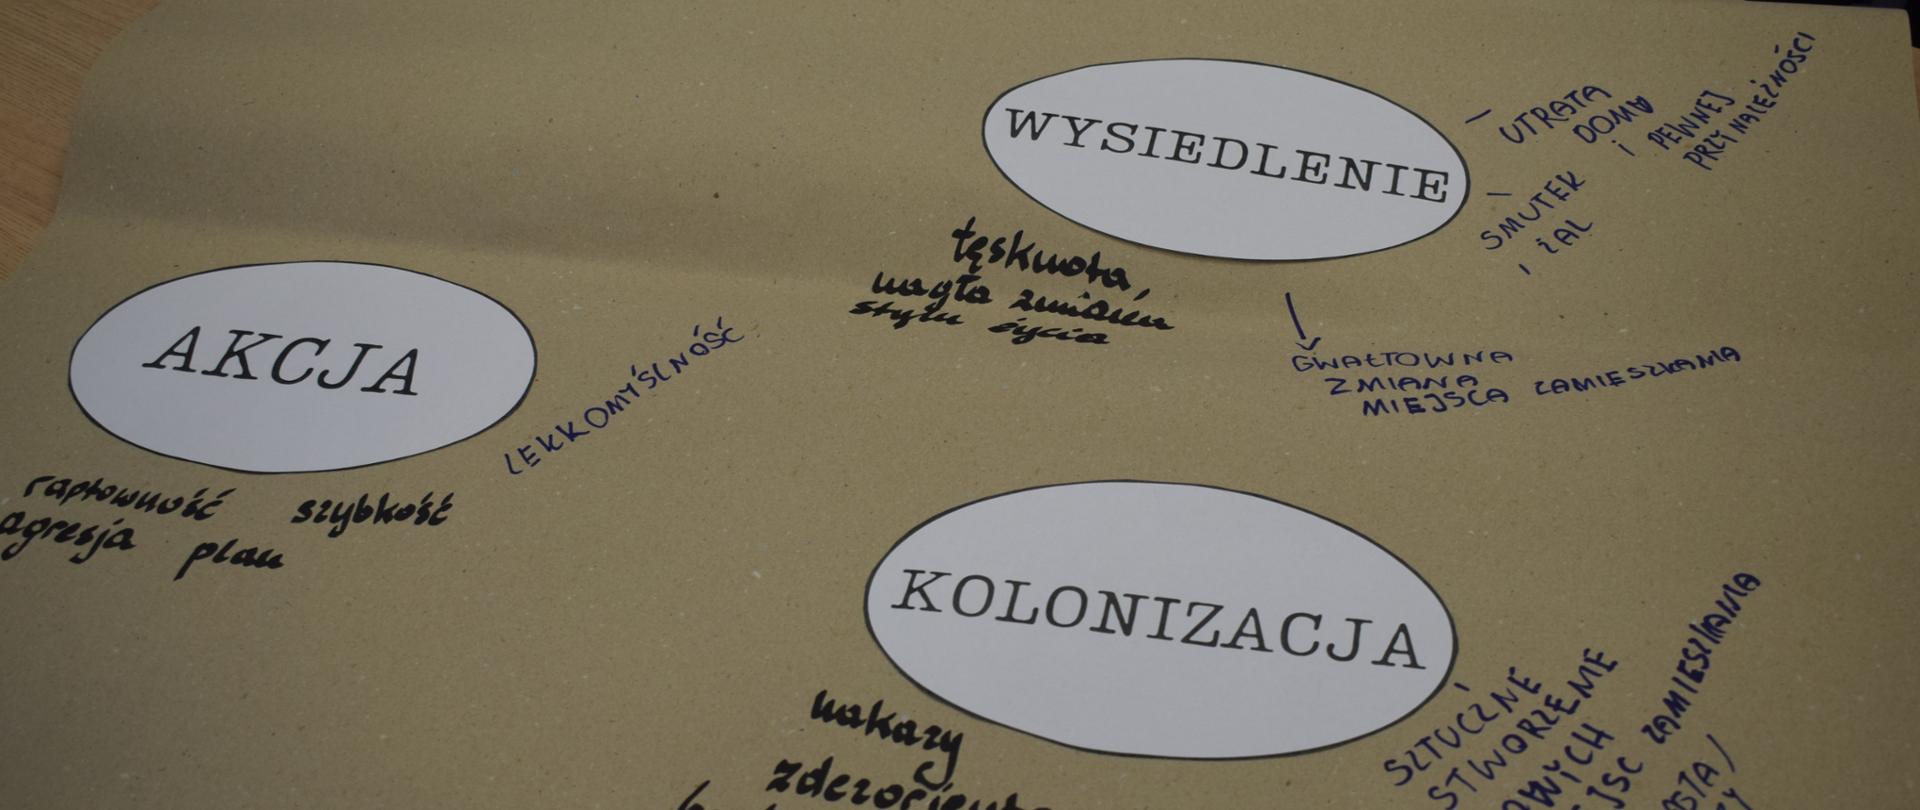 WYSIEDLENIE
– UTRATA
DOMU
i PEWNEJ
PRZYNALEŻNOŚCI
– SMUTEK
i ŻAL
tęsknota,
nagła zmiana
stylu życia
GWAŁTOWNA
ZMIANA
MIEJSCA ZAMIESZKANIA
AKCJA
LEKKOMYŚLNOŚĆ
raptowność szybkość
agresja plan
KOLONIZACJA
nakazy
SZTUCZNE
STWORZENIE
ZAMIESZKANIA